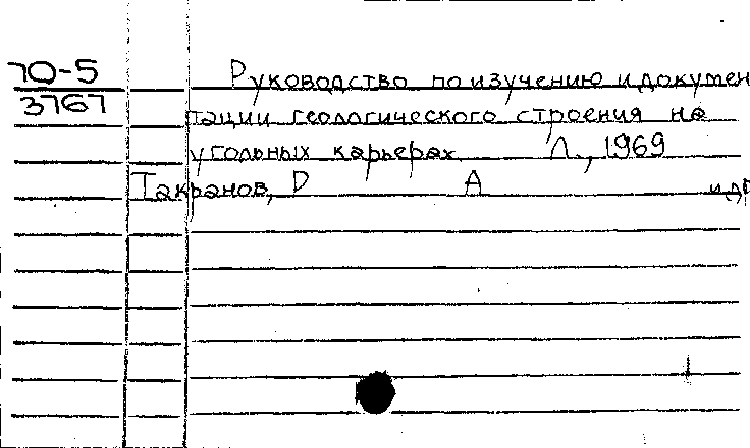 70-5 Руководство по изучению и докумен
3767 тации геологического строения на
угольных карьерах Л., 1969
Такранов, Р А и др